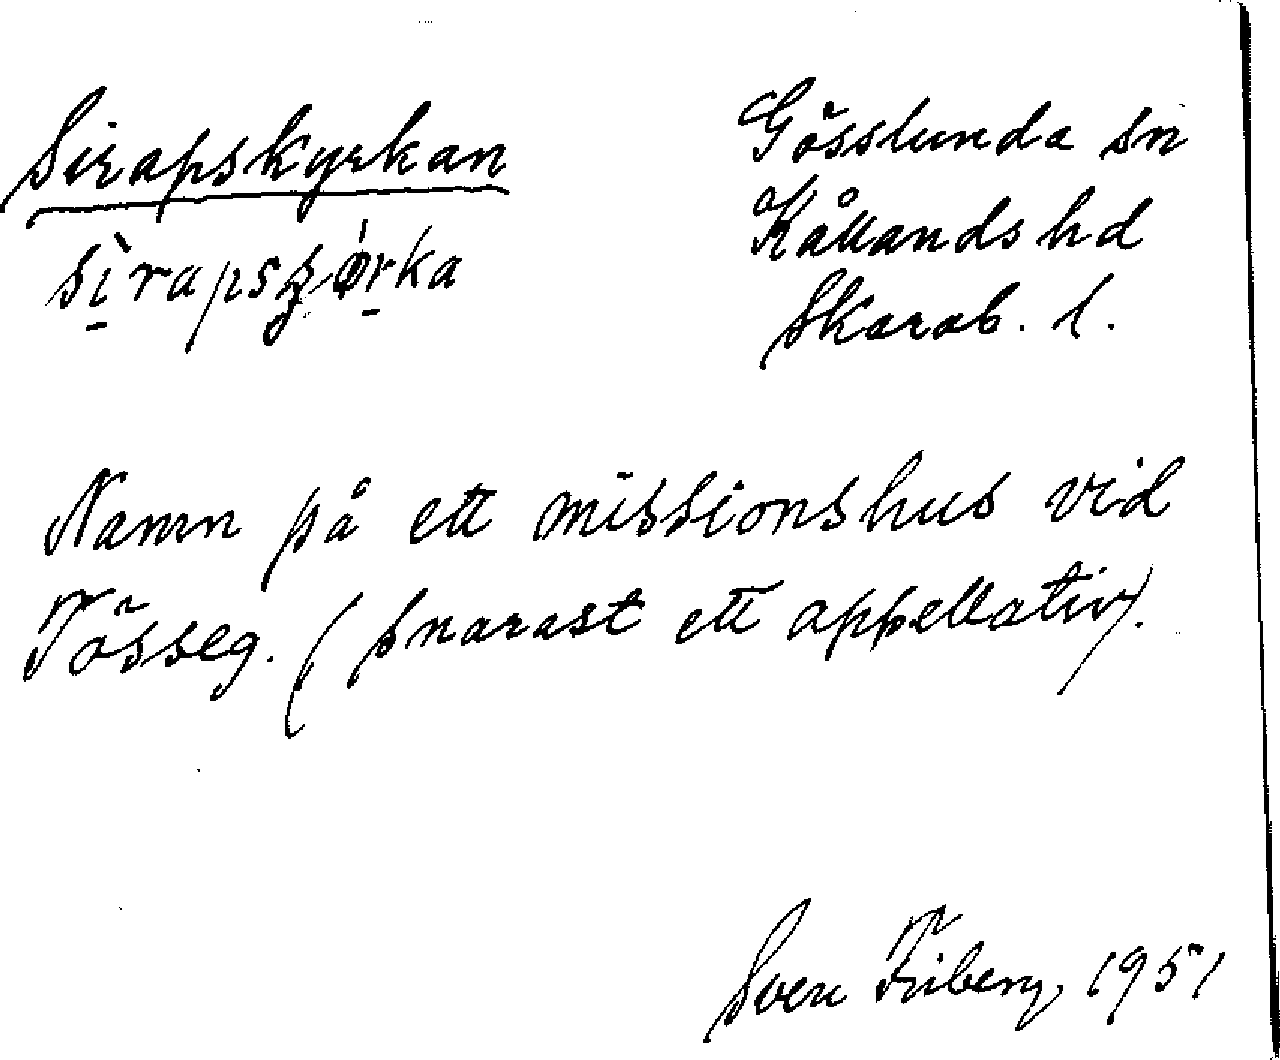 Sirapskyrkan
Gösslunda sn
Kållands hd
Skarab. l.
Namn på ett missionshus vid
Tösseg. (snarast ett appellativ).
Sven Friberg, 1951